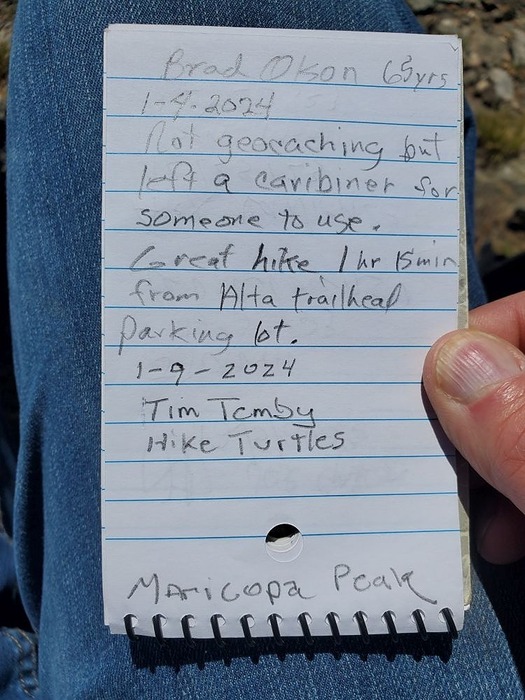 Brad Olson 65yrs
1-4-2024
Not geocaching but
left a caribiner for
someone to use.
Great hike 1 hr 15min
from Alta trailhead
parking lot.
1-9-2024
Tim Tomby
Hike Turtles
Maricopa Peak